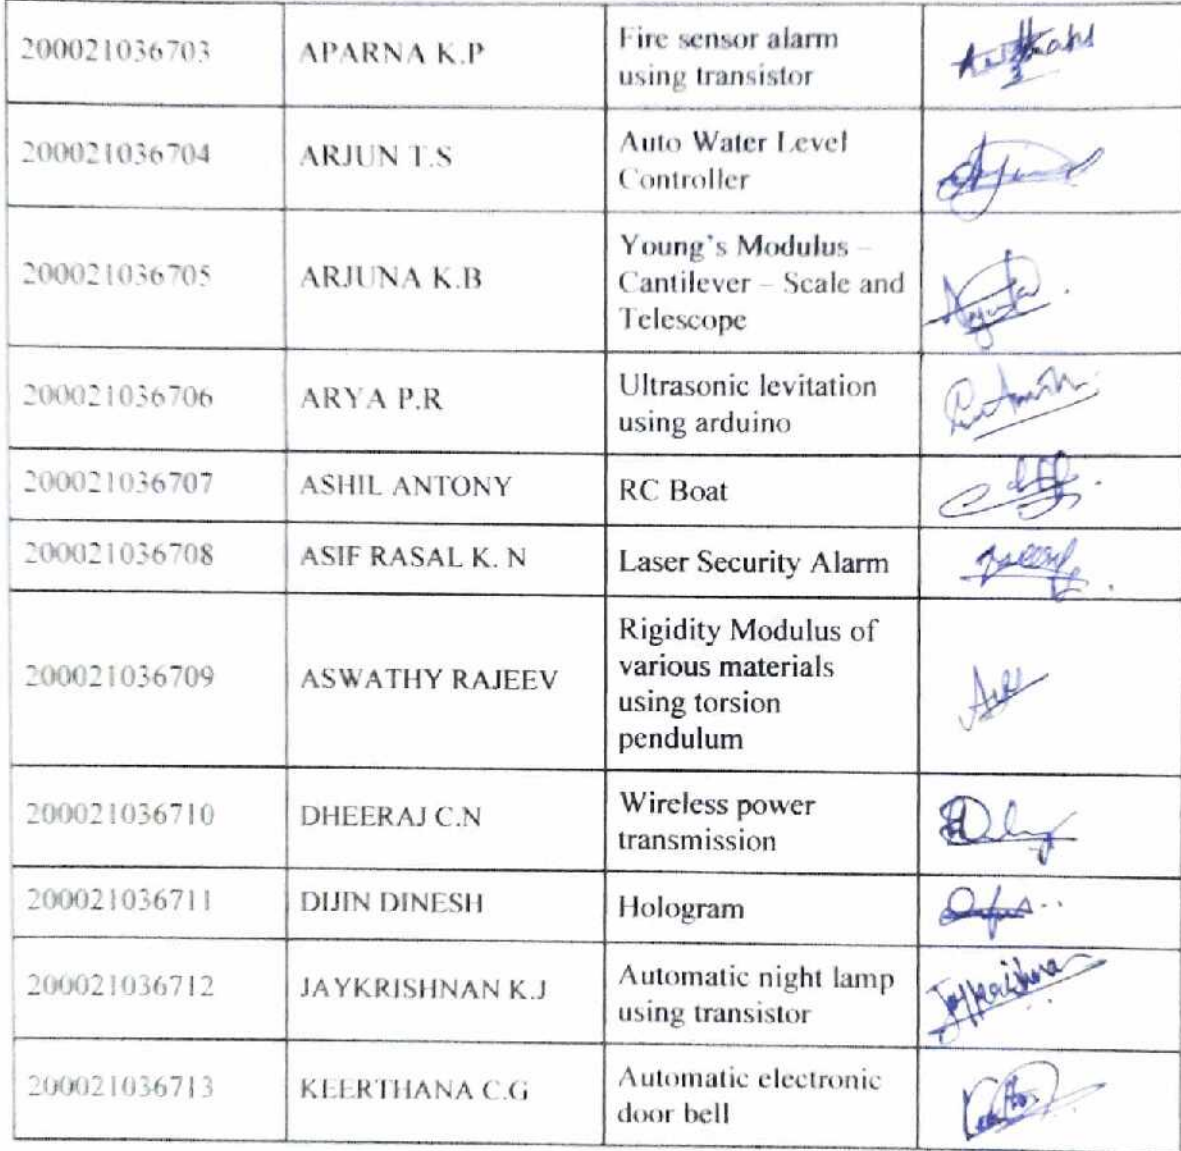 200021036703 APARNA K.P Fire sensor alarm
using transistor
200021036704 ARJUN T.S Auto Water Level
Controller
200021036705 ARJUNA K.B Young's Modulus –
Cantilever – Scale and
Telescope
200021036706 ARYA P.R Ultrasonic levitation
using arduino
200021036707 ASHIL ANTONY RC Boat
200021036708 ASIF RASAL K. N Laser Security Alarm
200021036709 ASWATHY RAJEEV Rigidity Modulus of
various materials
using torsion
pendulum
200021036710 DHEERAJ C.N Wireless power
transmission
200021036711 DIJIN DINESH Hologram
200021036712 JAYKRISHNAN K.J Automatic night lamp
using transistor
Jaykrishna
200021036713 KEERTHANA C.G Automatic electronic
door bell